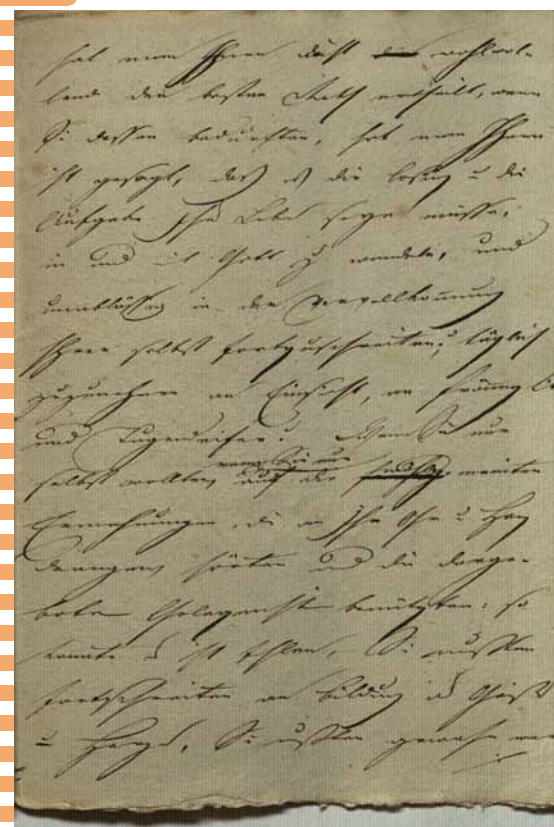 hat man Ihnen nicht wohlwol-
lend den besten Rath ertheilt, wenn
Sie dessen bedurften, hat man Ihnen
nicht gesagt, daß es die Losung u die
Aufgabe Ihres Lebens seyn müsse,
in und mit Gott zu wandeln, und
unabläßig in der Vervollkommnung
Ihrer selbst fortzuschreiten, täglich
zuzunehmen an Einsicht, an
und Tugendeifer? Wenn Sie nur
selbst wollten, wenn Sie nur auf die gemeinten
Ermahnungen, die an Ihr Ohr u Herz
drangen, hörten und die darge-
botene Gelegenheit benützten: so
konnte es nicht fehlen, Sie mußten
fortschreiten an Bildung des Geistes
u Herzens, Sie mußten